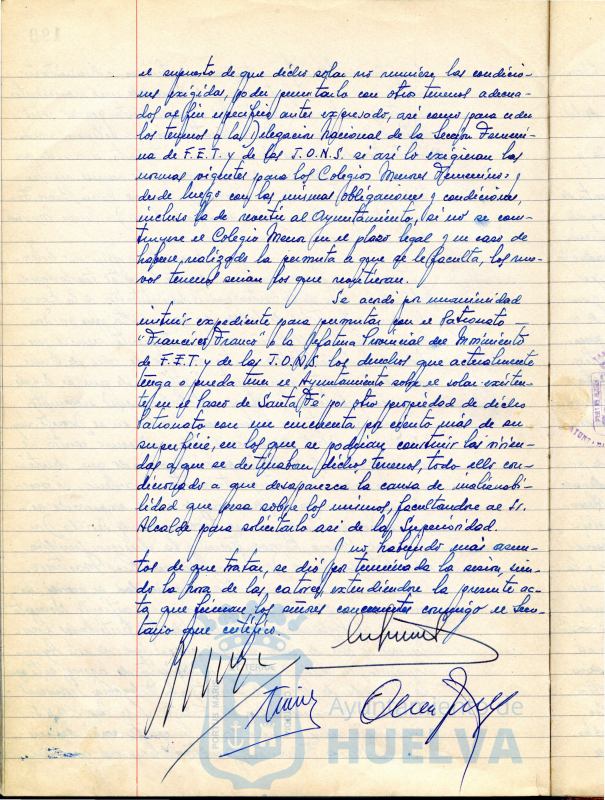 el supuesto de que dicho solar no reuniese las condicio-
nes exigidas, poder permutarlo con otros terrenos adecua-
dos al fin específico antes expresado, así como para ceder
los terrenos a la Delegación Nacional de la Sección Femeni-
na de F.E.T. y de las J.O.N.S. si así lo exigieran las
normas vigentes para los Colegios Menores Femeninos; y
desde luego con las mismas obligaciones y condiciones,
incluso la de revertir al Ayuntamiento, si no se cons-
truyere el Colegio Menor en el plazo legal y en caso de
haberse realizado la permuta a que se le faculta, los nue-
vos terrenos serían los que revertieran.
Se acordó por unanimidad
instruir expediente para permutar con el Patronato
"Francisco Franco" o la Jefatura Provincial del Movimiento
de F.E.T. y de las J.O.N.S. los derechos que actualmente
tenga o pueda tener el Ayuntamiento sobre el solar existen-
te en el Paseo de Santa Fé por otro propiedad de dicho
Patronato con un cincuenta por ciento más de su
superficie, en los que se podrían construir las vivien-
das a que se destinaban dichos terrenos, todo ello con-
dicionado a que desaparezca la causa de inalienabi-
lidad que pesa sobre los mismos, facultándose al Sr.
Alcalde para solicitarlo así de la Superioridad.
Y no habiendo más asun-
tos de que tratar, se dió por terminada la sesión, sien-
do la hora de las catorce, extendiéndose la presente ac-
ta que firman los señores concurrentes conmigo el Secre-
tario que certifico.
Ayuntamiento de
HUELVA